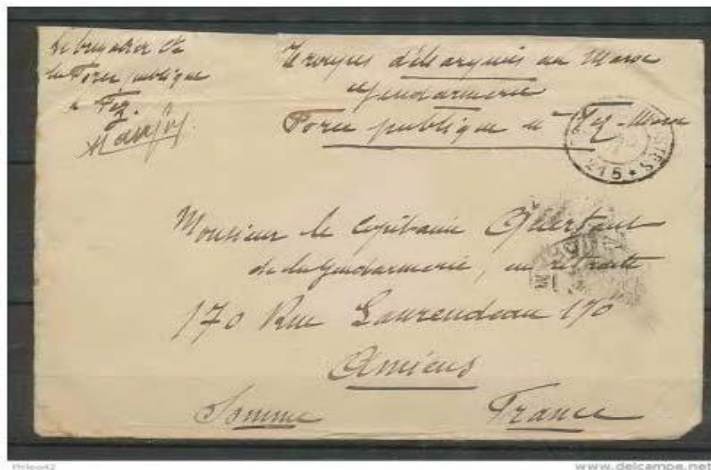 Le brigadier de
la Force publique
à Fez
Troupes débarquées au Maroc
Gendarmerie
Force publique à Fez - Maroc
215
Monsieur le Capitaine
de la Gendarmerie, en retraite
170 Rue Laurendeau 170
Amiens
Somme France
Philpo42
www.delcampe.net